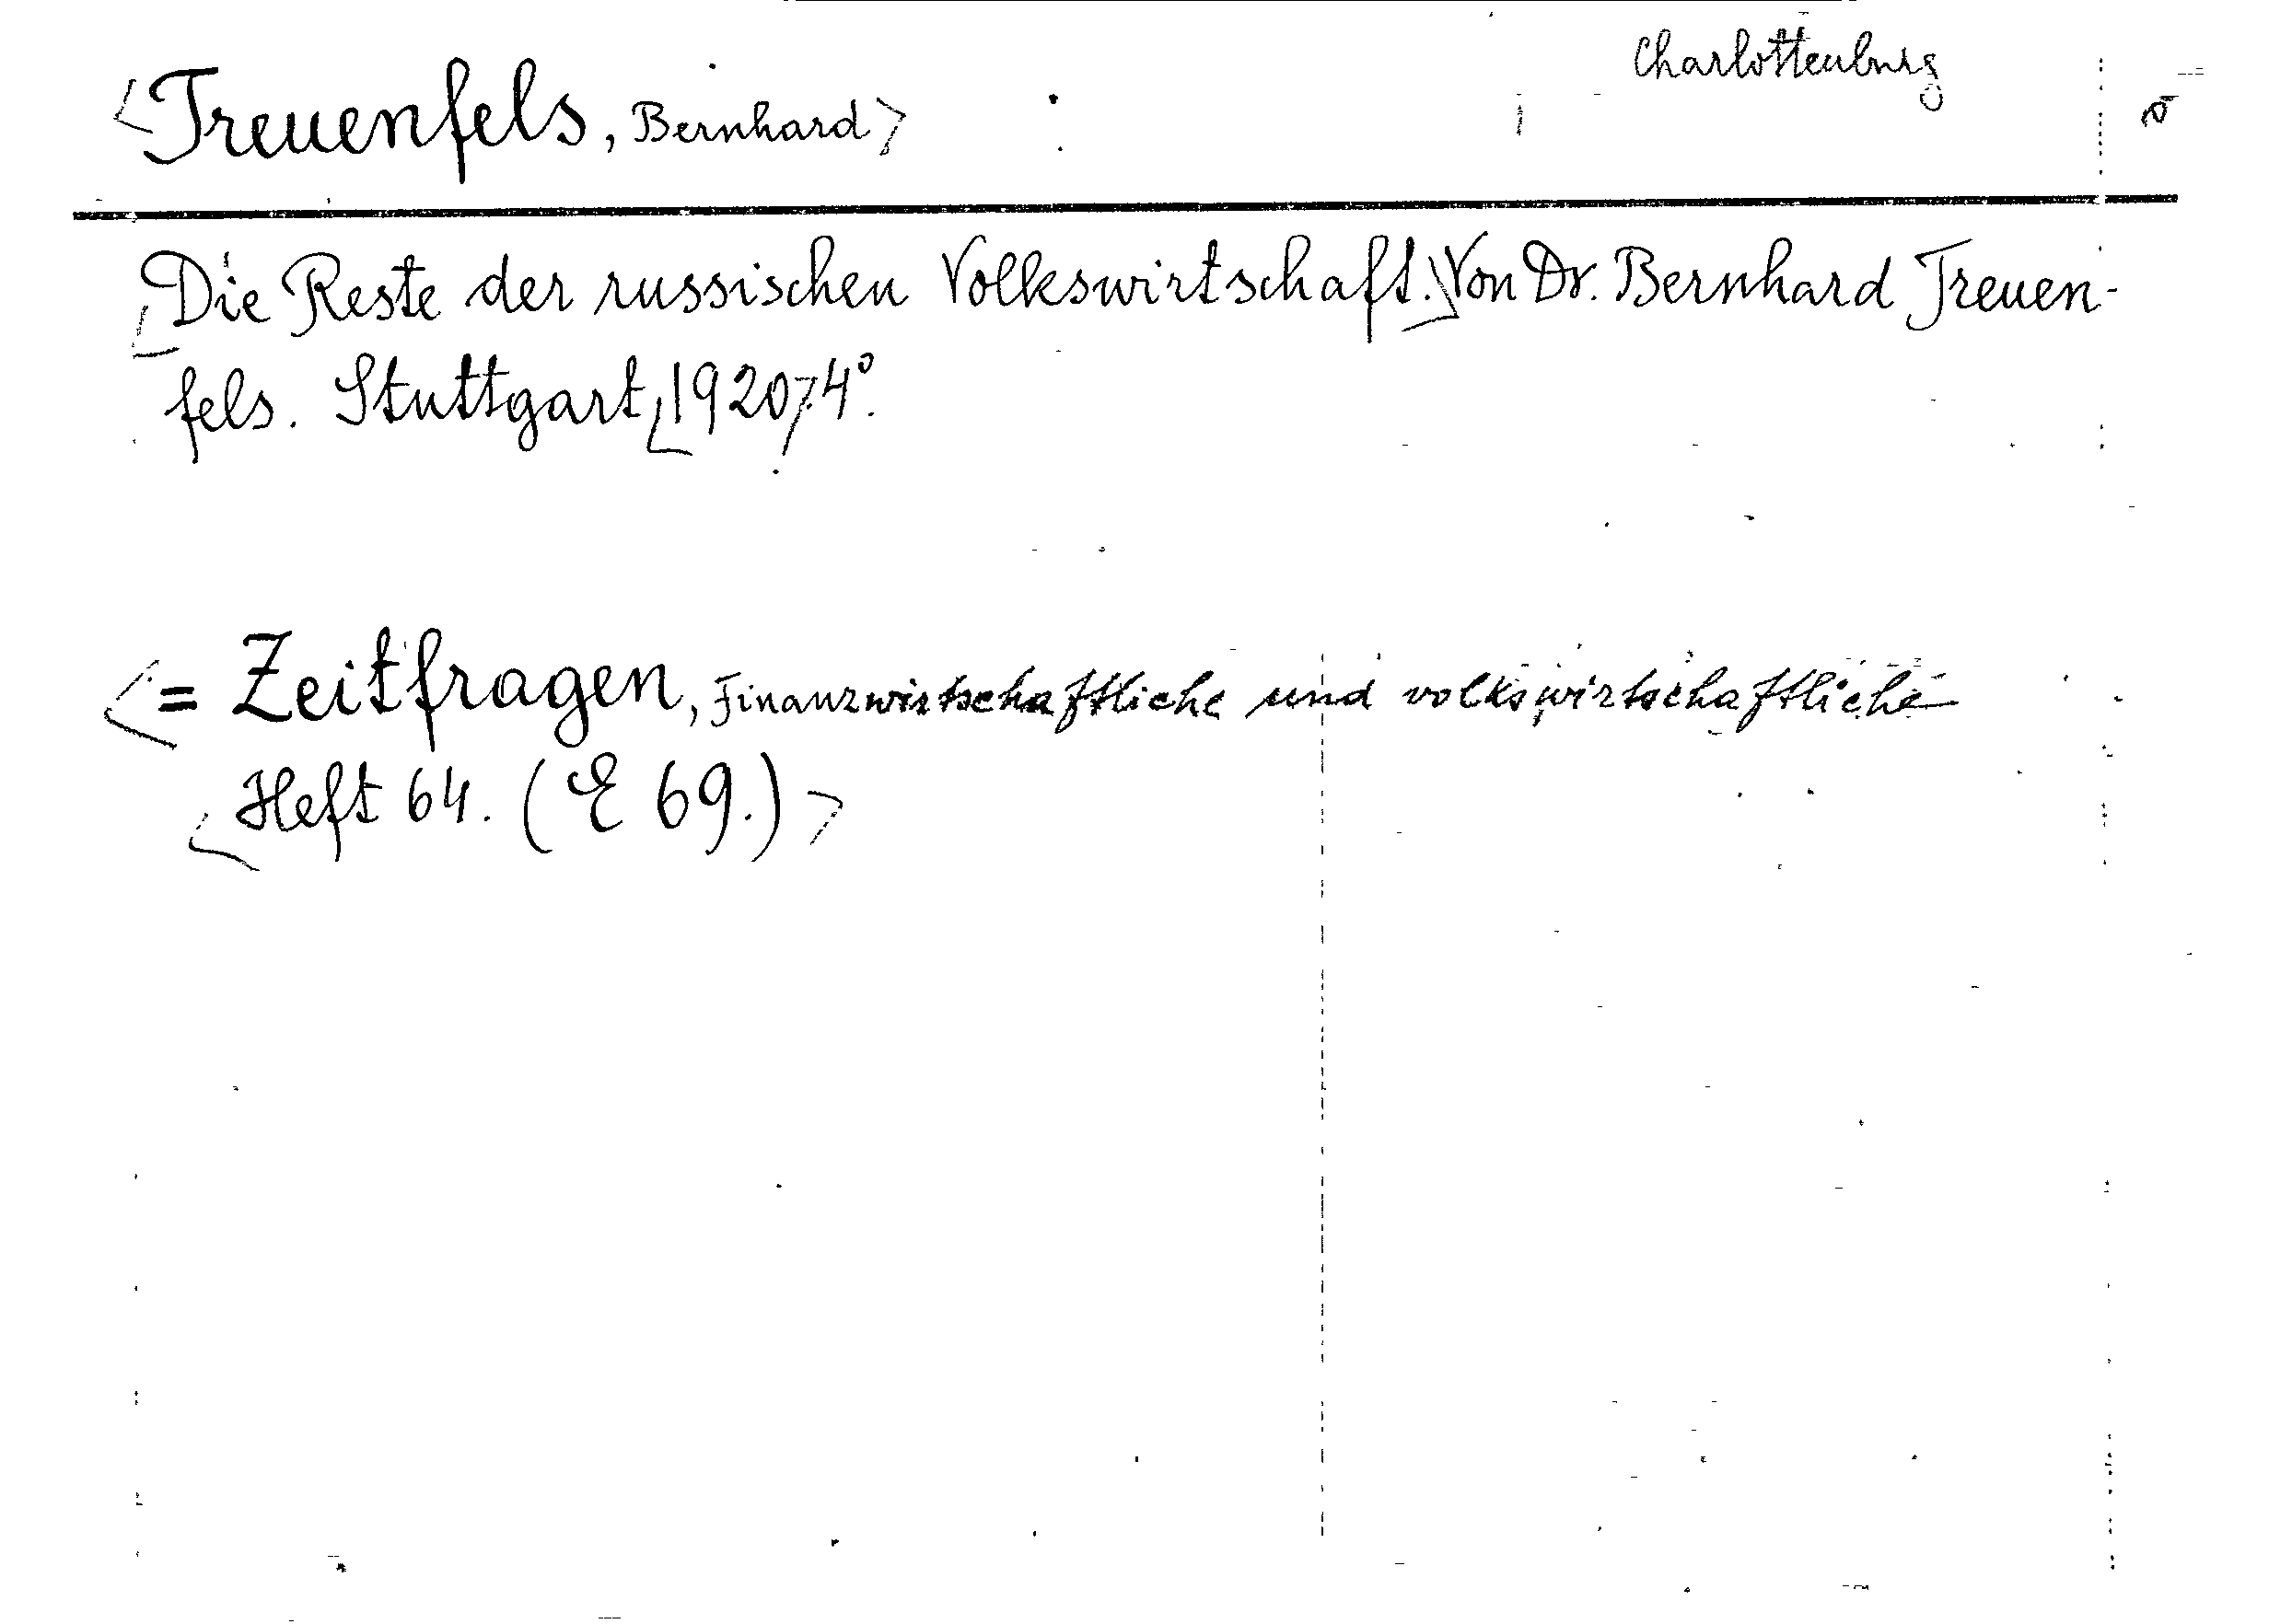 Charlottenburg
<Treuenfels, Bernhard>
<Die Reste der russischen Volkswirtschaft.> Von Dr. Bernhard Treuen-
fels. Stuttgart, <1920>. 4°.
<= Zeitfragen, Finanzwirtschaftliche und volkswirtschaftliche
<Heft 64. (E 69.)>